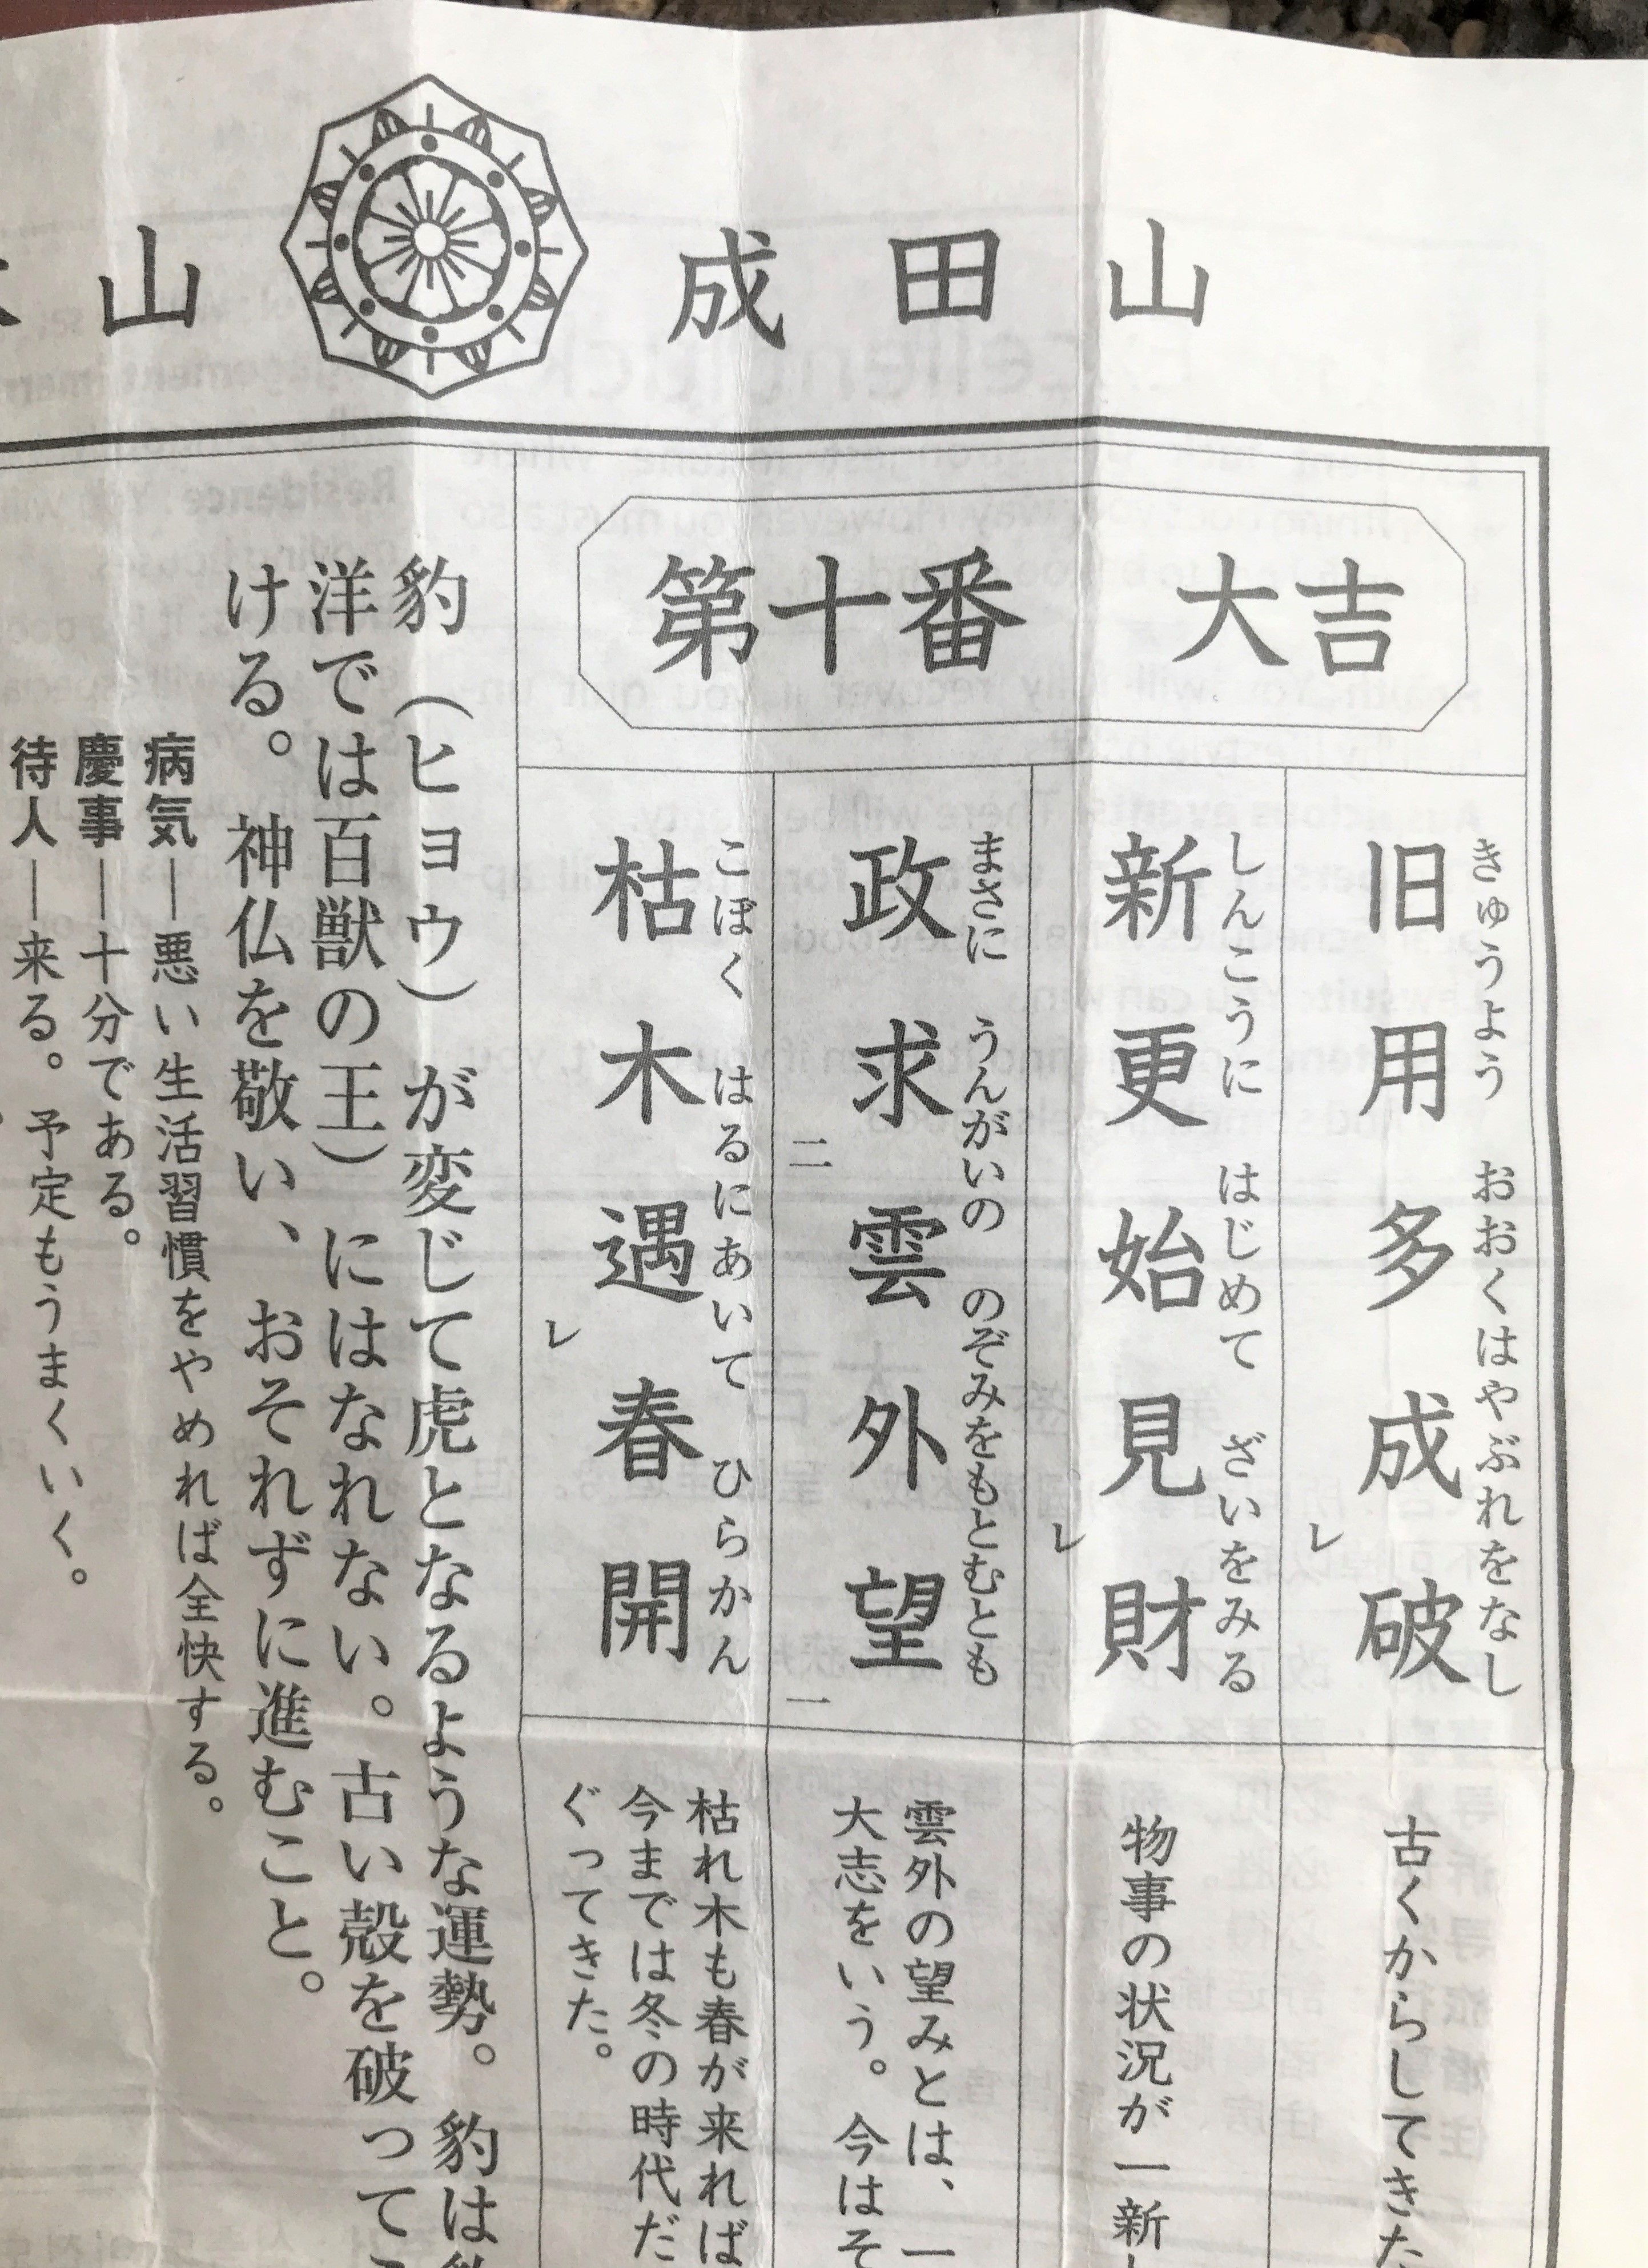 山 成田山
第十番 大吉
きゅうよう おおくはやぶれをなし
旧用多成レ破
しんこうに はじめて ざいをみる
新更始見レ財
まさに うんがいの のぞみをもとむとも
政求二雲外望一
こぼく はるにあいて ひらかん
枯木遇レ春開
古くからしてきた
物事の状況が一新
雲外の望みとは、一
大志をいう。今はそ
枯れ木も春が来れば
今までは冬の時代だ
ぐってきた。
豹（ヒョウ）が変じて虎となるような運勢。豹は
洋では百獣の王）にはなれない。古い殻を破って
ける。神仏を敬い、おそれずに進むこと。
病気―悪い生活習慣をやめれば全快する。
慶事―十分である。
待人―来る。予定もうまくいく。